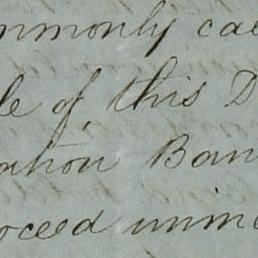 mmonly cal
le of this D
ation Ban
oceed imme